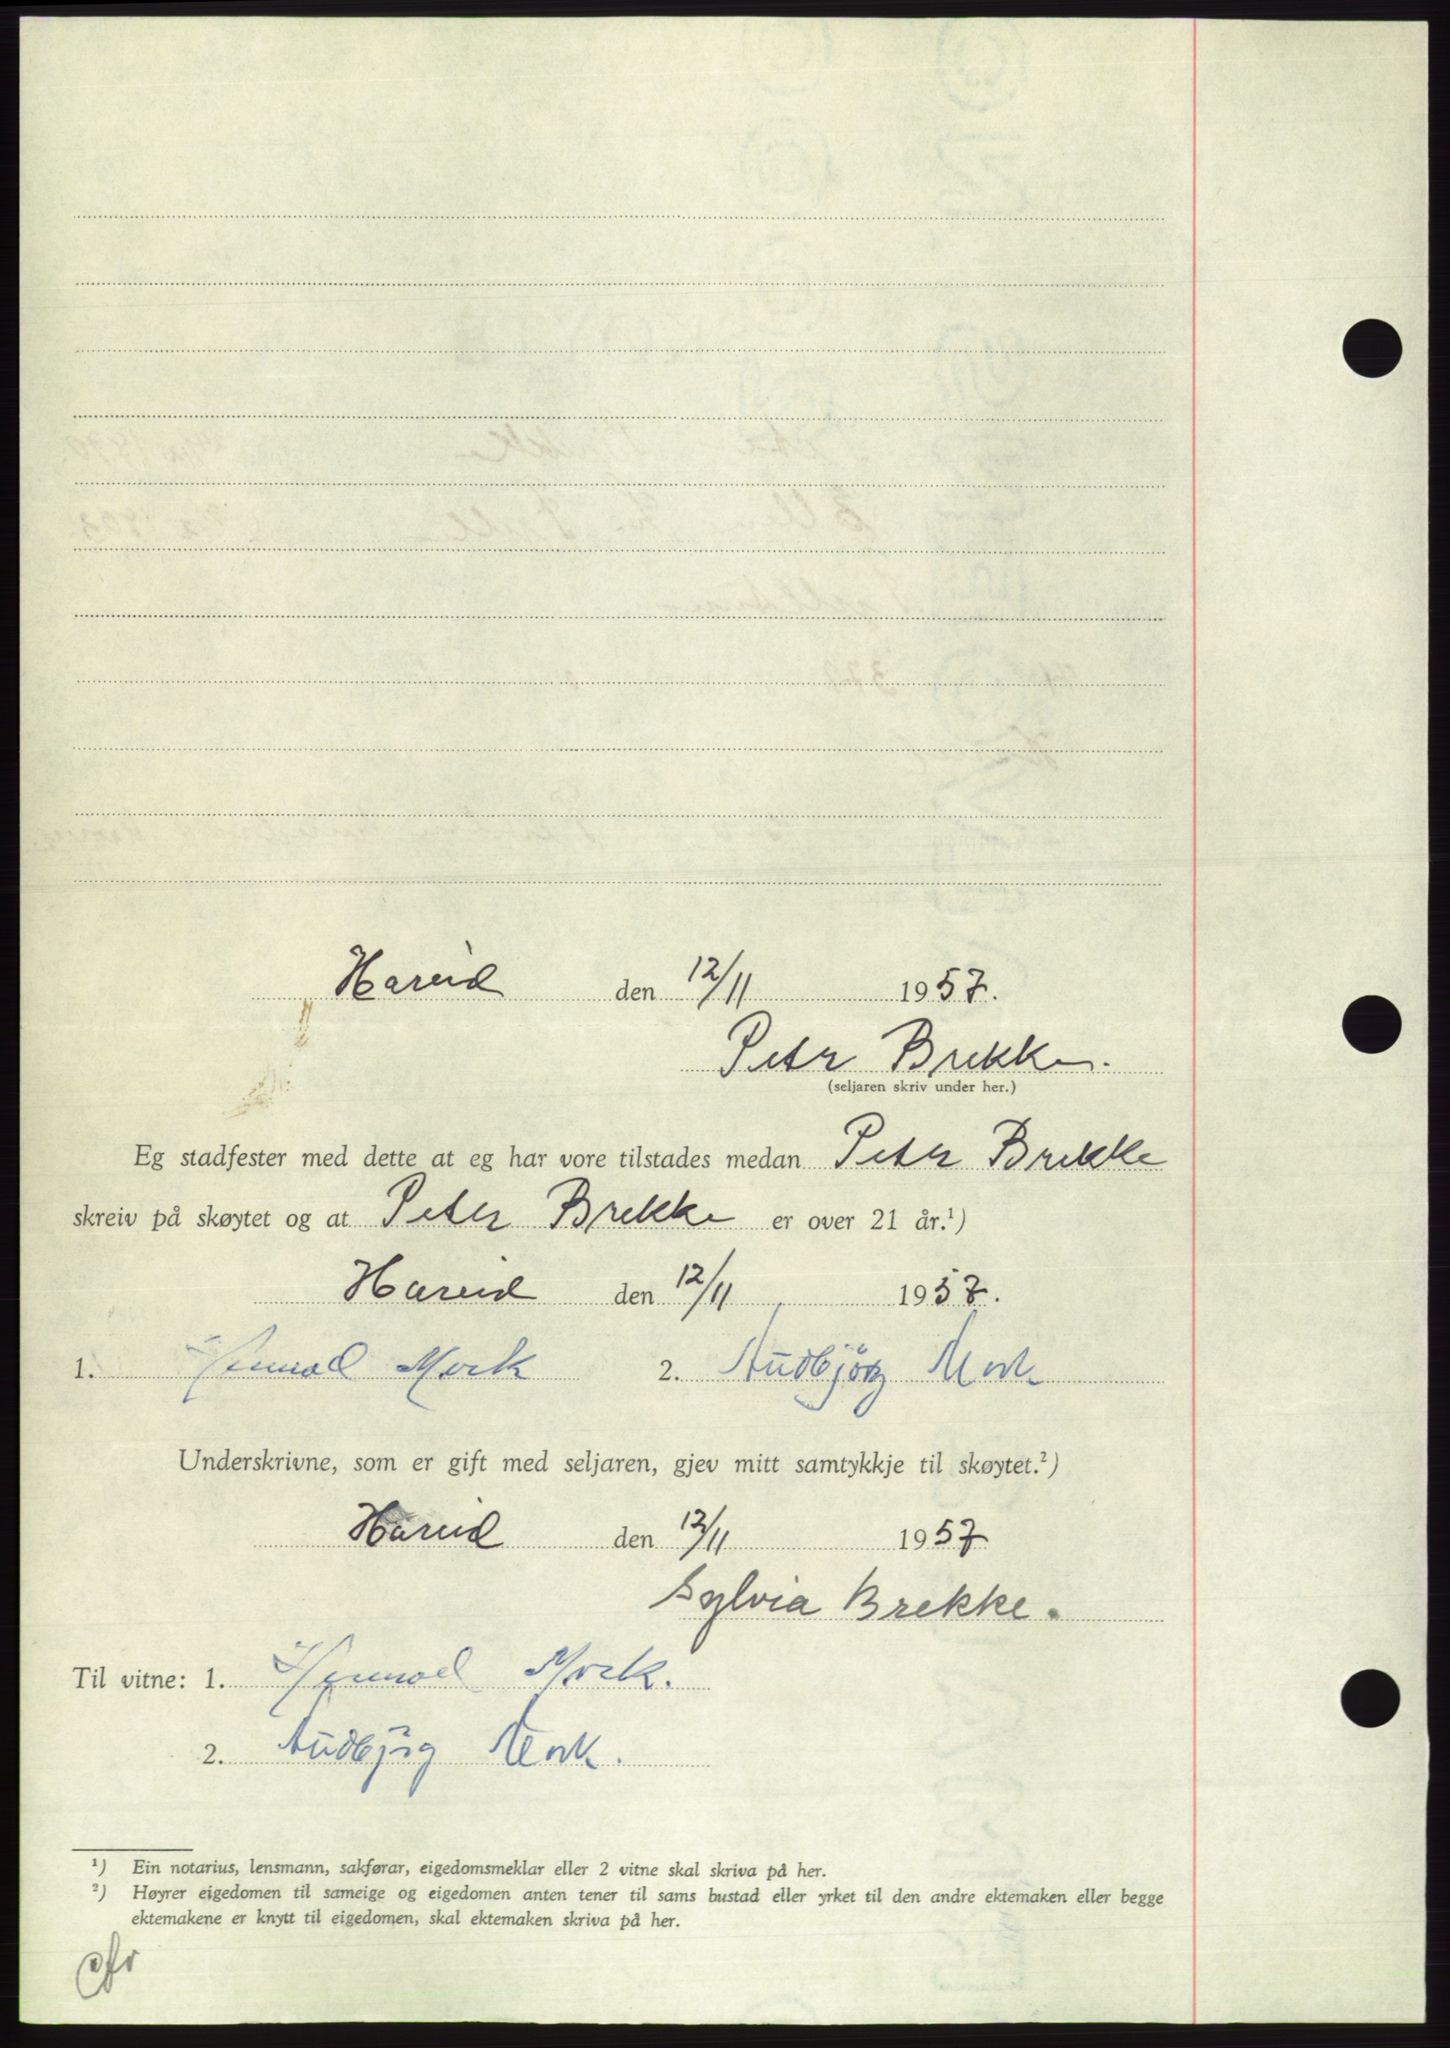 Hareid den 12/11 1957.
Peter Brekke.
(seljaren skriv under her.)
Eg stadfester med dette at eg har vore tilstades medan Peter Brekke
skreiv på skøytet og at Peter Brekke er over 21 år.¹)
Hareid den 12/11 1957.
1. Mork 2. Audbjörg Mork
Underskrivne, som er gift med seljaren, gjev mitt samtykkje til skøytet.²)
Hareid den 12/11 1957
Sylvia Brekke.
Til vitne: 1. Mork.
2. Audbjörg Mork.
¹) Ein notarius, lensmann, sakførar, eigedomsmeklar eller 2 vitne skal skriva på her.
²) Høyrer eigedomen til sameige og eigedomen anten tener til sams bustad eller yrket til den andre ektemaken eller begge
ektemakene er knytt til eigedomen, skal ektemaken skriva på her.